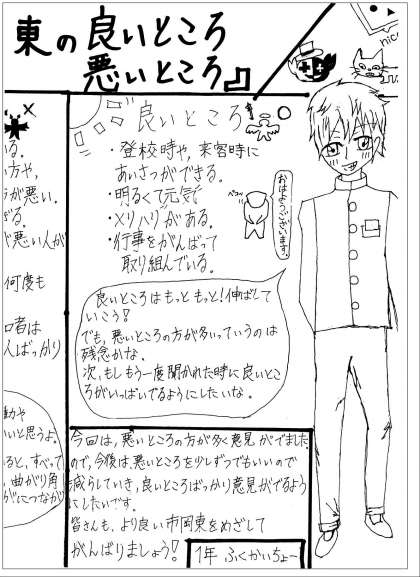 東の良いところ
悪いところ』
nic
良いところ
・登校時や、来客時に
あいさつができる。
・明るくて元気
・メリハリがある。
・行事をがんばって
取り組んでいる。
ペコッ
おはようございます。
良いところはもっともっと!伸ばして
いこう!
でも、悪いところの方が多いっていうのは
残念かな。
次、もしもう一度聞かれた時に良いとこ
ろがいっぱいでるようにしたいな。
る。
方や、
が悪い。
ぎる。
悪い人が
何度も
口者は
んばっかり
動や
いいと思うよ。
ると、すべって
、曲がり角
がにつなが
今回は、悪いところの方が多く意見がでました
ので、今後は、悪いところを少しずつでもいいので
減らしていき、良いところばっかり意見がでるよう
にしたいです。
皆さんも、より良い市岡東をめざして
がんばりましょう!
1年 ふくかいちょー